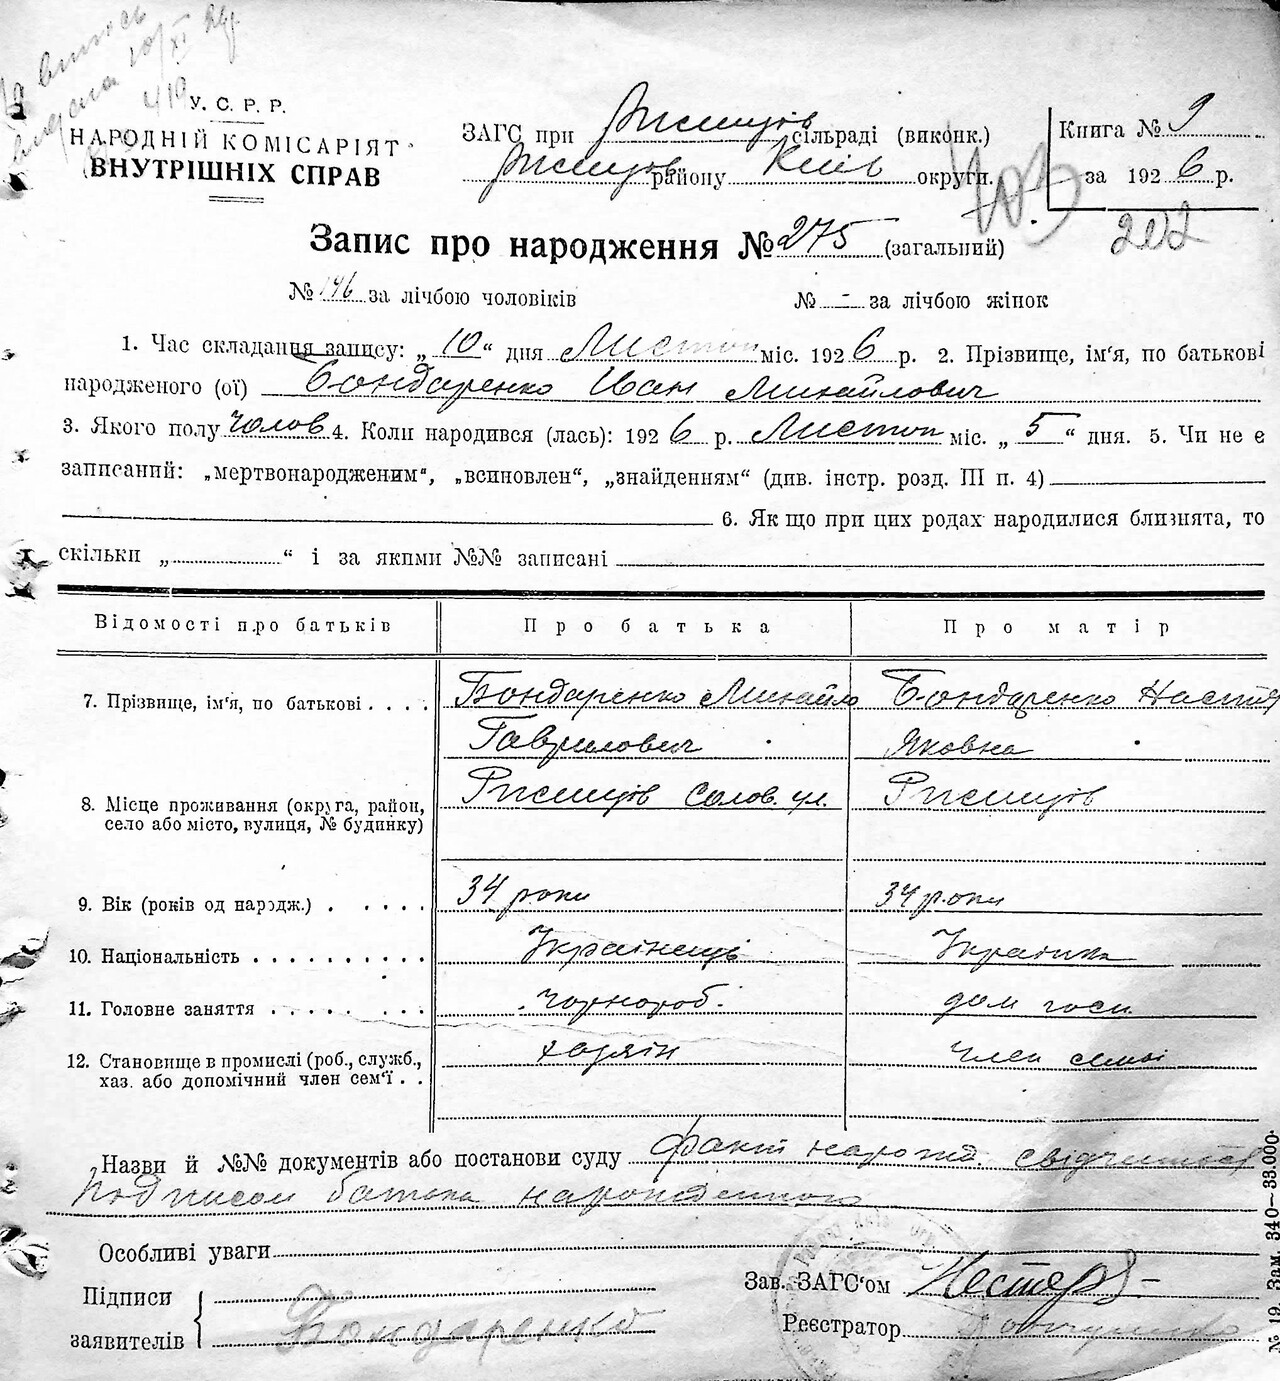 виписъ
видана 10/XI 26р.
410
У. С. Р. Р.
НАРОДНІЙ КОМІСАРІЯТ
ВНУТРІШНІХ СПРАВ
ЗАГС при Ржищів сільраді (виконк.)
Ржищів району Київ округи.
Книга № 9
за 1926 р.
202
Запис про народження № 275 (загальний)
№ 146 за лічбою чоловіків № - за лічбою жінок
1. Час складання запису: „10“ дня Листоп міс. 1926 р. 2. Прізвище, ім'я, по батькові
народженого (ої) Бондаренко Иван Михайлович
3. Якого полу чолов 4. Коли народився (лась): 1926 р. Листоп міс. „5“ дня. 5. Чи не є
записаний: „мертвонародженим“, „всиновлен“, „знайденням“ (див. інстр. розд. III п. 4)
6. Як що при цих родах народилися близнята, то
скільки „ “ і за якими №№ записані
Відомості про батьків Про батька Про матір
7. Прізвище, ім'я, по батькові . . . . Бондаренко Михайло Бондаренко Настя
Гаврилович Яковна
8. Місце проживання (округа, район, Ржищів Солов. ул. Ржищів
село або місто, вулиця, № будинку)
9. Вік (років од народж.) . . . . . 34 роки 34 роки
10. Національність . . . . . . . . . . Українець Українка
11. Головне заняття . . . . . . . . Чорнороб. дом госп.
12. Становище в промислі (роб., служб., хазяін член семьі
хаз. або допомічний член сем'ї . .
Назви й №№ документів або постанови суду факт нарожд. свідчиться
подписом батька народженного
Особливі уваги
Підписи
заявителів Бондаренко
Зав. ЗАГС'ом Нестер
Реєстратор
№ 19 Зам. 340—33.000